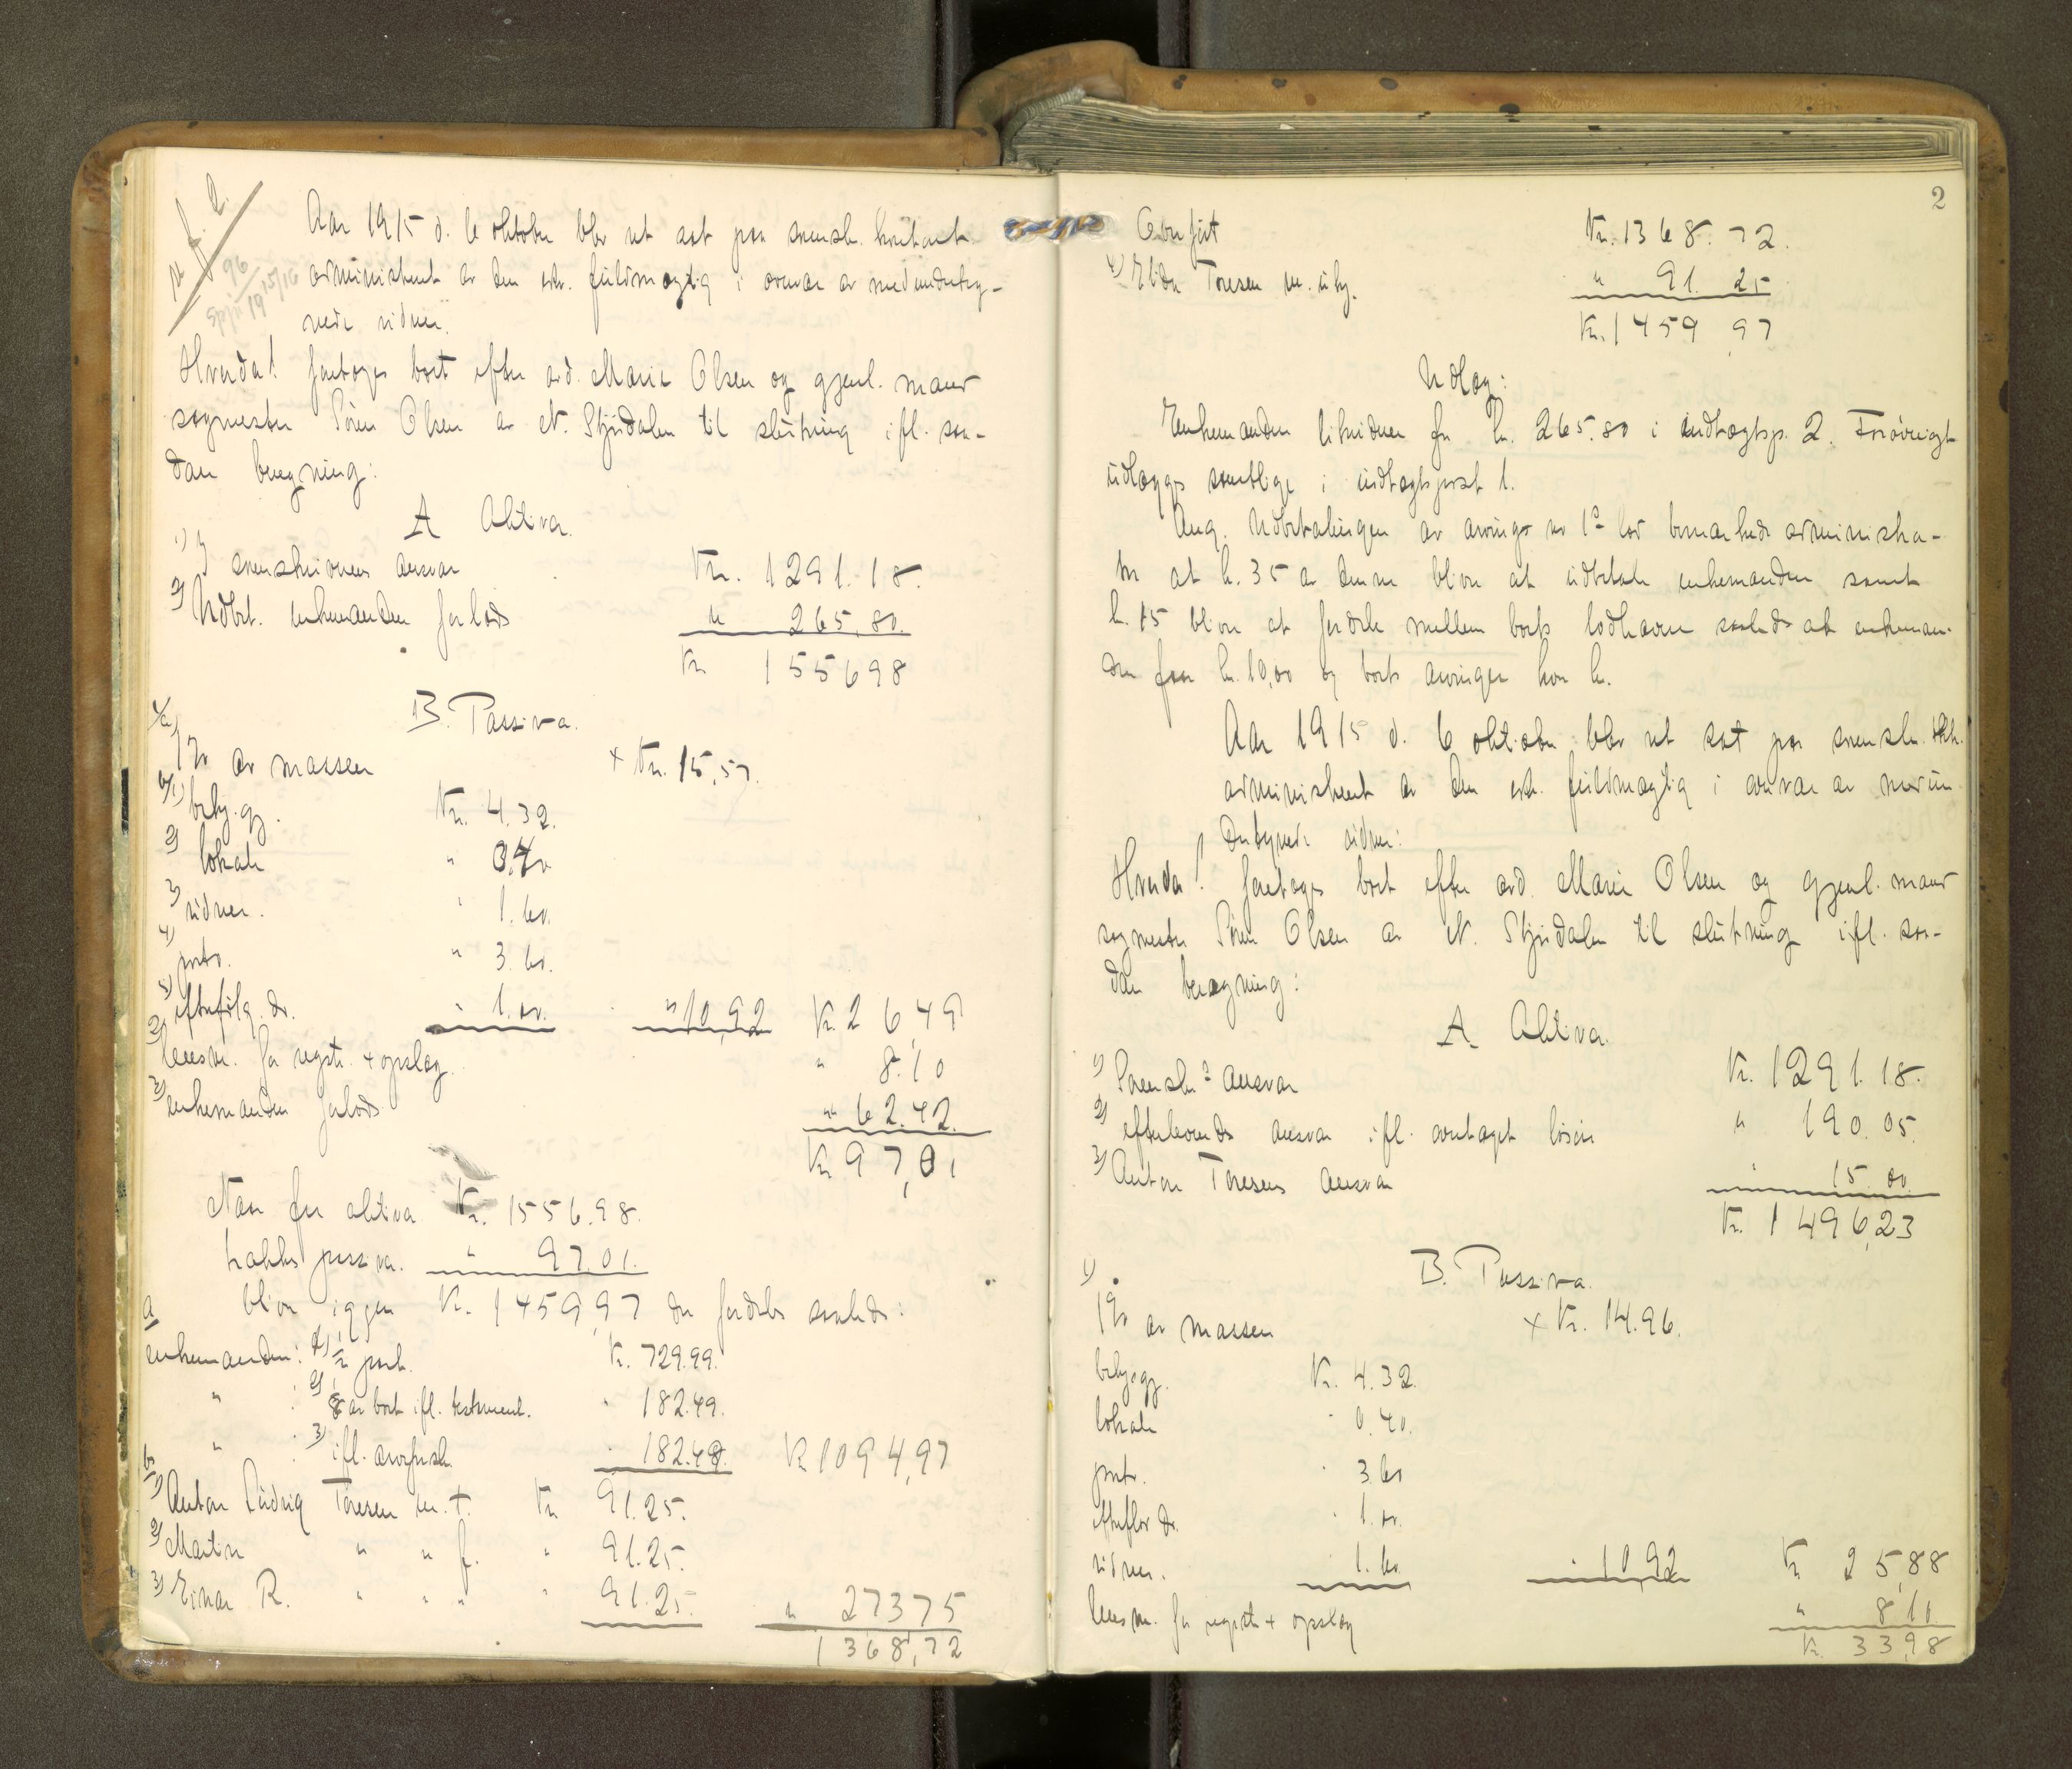 Aar 1915 d. 6 oktober blev ret sat paa sorensk. kontant
administrert av den edsv. fuldmægtig i overvær av medunderteg-
nede vidner.
Hvorda! foretoges boet efter avd. Maria Olsen og gjenl. mand
sagmester Søren Olsen av N. Stjørdalen til slutning ifl. saa-
dan beregning:
A Aktiva.
1) I sorenskriverens ansvar Kr. 1291.18.
2) Utbet. enkemanden forlods " 265.80.
Kr 155698
B. Passiva.
1/a) 1% av massen + Kr. 15,57.
b/1) beky.gj. Kr. 4.32.
2) lokale " 0.40
3) vidner. " 1.60.
4) porto. " 3.60.
5) efterfølg. do. " 1.00. " 10,92 Kr. 26,49
2) lensm. for registr. + opslag. " 8.10
3) enkemanden forlods " 62.42.
Kr. 97,01
Naar fra aktiva Kr. 1556.98.
trækkes passiva. " 97.01.
blir igjen Kr. 1459,97 der fordeles saaledes:
a
enkemanden: 1) ½ part. Kr. 729.99.
" : 2) ⅛ av boet ifl. testament. " 182.49.
" : 3) ifl. arvefrask. " 182.49. Kr 1094,97
b
1) Anton Ludvig Toresen m. t. Kr 91.25.
2) Martin " " f. " 91.25.
3) Einar R. " " " " 91.25. " 27375
1368,72
2
Overført Kr. 1368.72.
4) Elida Toresen m. uby. " 91.25
Kr. 1459,97
Utlæg:
Enkemanden likvideres for kr. 265.80 i indtægtsp. 2. Forøvrigt
utlægges samtlige i indtægtspost 1.
Ang. Utbetalingen av arvingr nr 1s lod bemærkede administra-
tor at kr. 35 av denne blir at utbetale enkemanden samt
kr. 15 blir at fordele mellem boets lodhavere saaledes at enkeman-
den faar kr. 10,00 og boets arvinger hver kr.
Aar 1915 d. 6 oktober blev ret sat paa sorensk. kont.
administrert av den edsv. fuldmægtig i overvær av medun-
dertegnede vidner:
Hvorda! foretoges boet efter avd. Marie Olsen og gjenl. mand
sagmester Søren Olsen av N. Stjørdalen til slutning ifl. saa-
dan beregning:
A. Aktiva.
1) Sorenskr.s ansvar Kr. 1291.18.
2) efterlevendes ansvar ifl. overtaget løsøre " 190.05.
3) Anton Toresens ansvar " 15.00.
Kr. 1496,23
B. Passiva.
1) 1% av massen + Kr. 14.96.
beky.gj. Kr. 4.32.
lokale " 0.40.
porto. " 3.60
efterfølg do. " 1.00.
vidner. " 1.60. " 10,92 Kr 25,88
lensm. for registr + opslag " 8.10.
Kr. 33,98